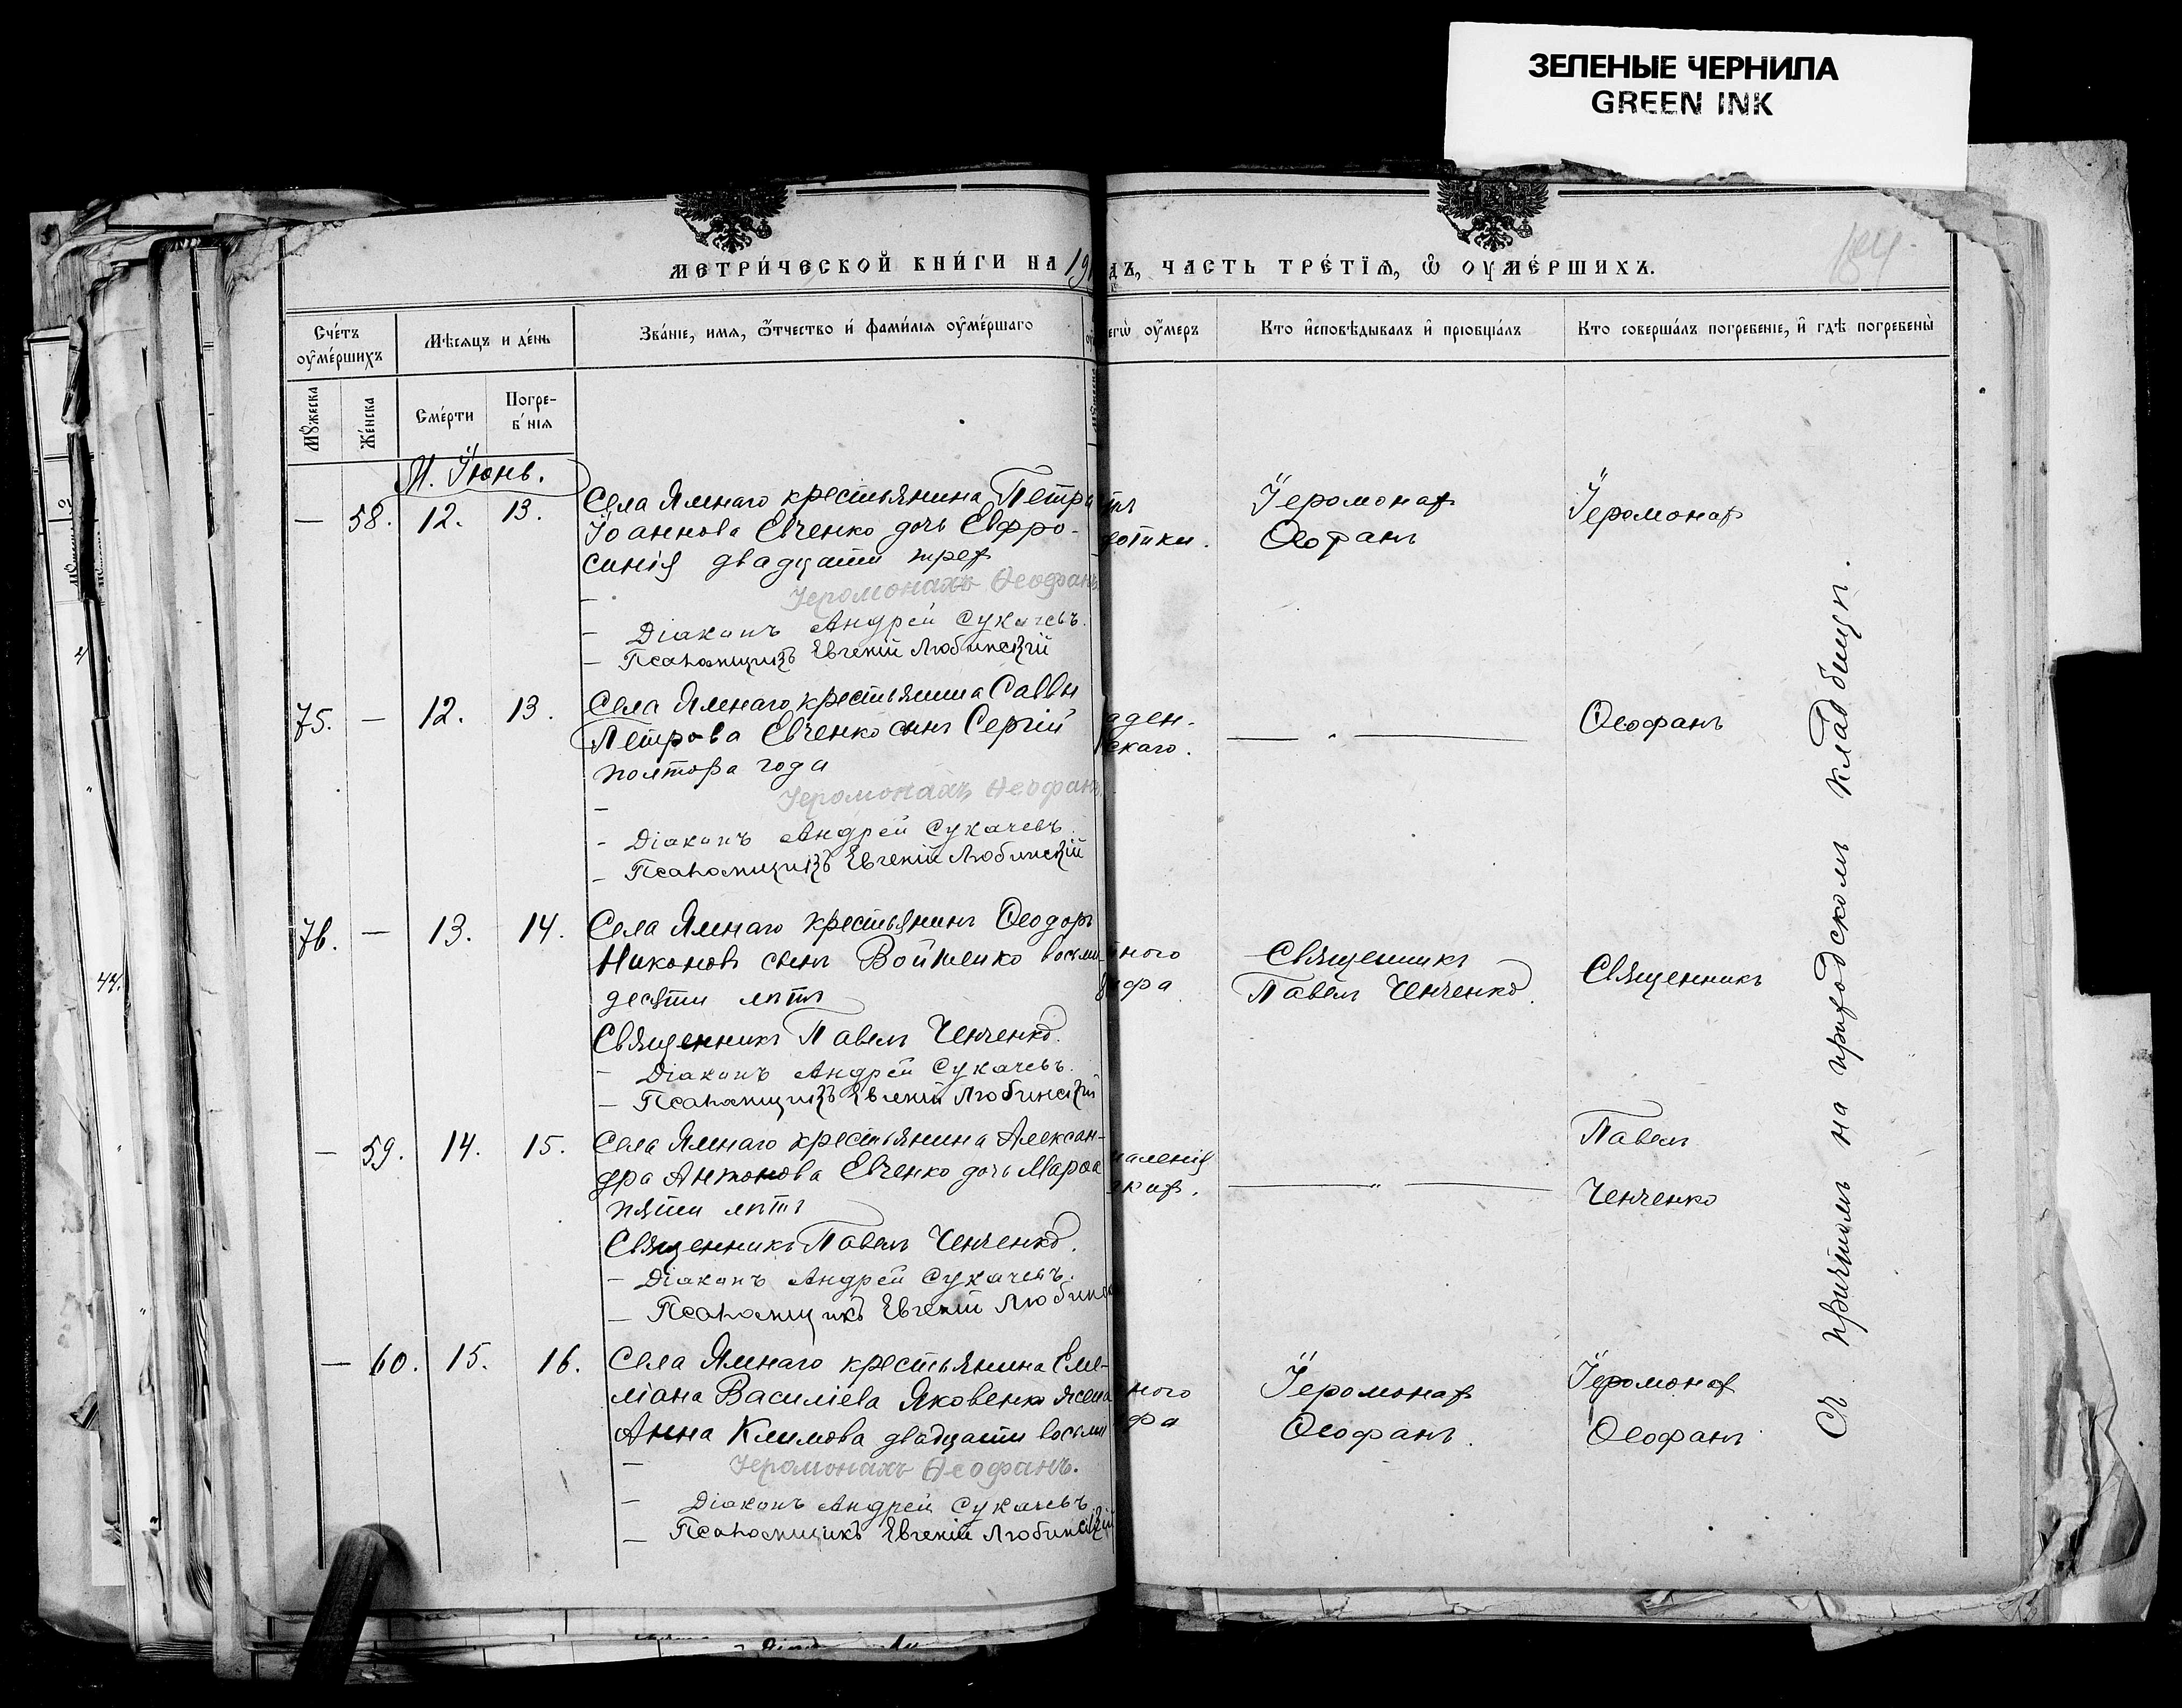 ЗЕЛЕНЫЕ ЧЕРНИЛА
GREEN INK
МЕТРИ́ЧЕСКОЙ КНИ́ГИ НА 19
ДЪ, ЧАСТЬ ТРЕ́ТЇѦ, Ѽ ОУМЕ́РШИХЪ.
Сче́тъ оуме́ршихъ
Мѣсяцъ и де́нь
Зва́нїе, имя, ѿтчество и фами́лїя оуме́ршаго
егѡ оумеръ
Кто исповѣдывалъ и прїобщалъ
Кто соверша́лъ погребенїе, и гдѣ погребены
Мꙋжеска
Же́нска
Сме́рти
Погребнїя
М. Іюнь.
— 58. 12. 13.
Села Ямнаго крестьянина Петра
Іоаннова Евченко дочь Евфро-
синія двадцати трех
Іеромонахъ Ѳеофанъ
— Діаконъ Андрей Сукачевъ.
— Псаломщикъ Евгеній Любинскій
отки.
Іеромонах
Ѳеофанъ
Іеромонах
75. — 12. 13.
Села Ямнаго крестьянина Саввы
Петрова Евченко сынъ Сергій
полтора года
Іеромонахъ Ѳеофанъ
- Діаконъ Андрей Сукачевъ
— Псаломщикъ Евгеній Любинскій
аден-
скаго.
— „ —
Ѳеофанъ
76. — 13. 14.
Села Ямнаго крестьянинъ Ѳеодоръ
Никоновъ сынъ Войтенко восьми-
десяти лѣтъ
Священникъ Павелъ Ченченко.
— Діаконъ Андрей Сукачевъ.
— Псаломщикъ Евгеній Любинскій
ного
ифа
Священникъ
Павелъ Ченченко.
Священникъ
— 59. 14. 15.
Села Ямнаго крестьянина Алексан-
дра Антонова Евченко дочь Марѳа
пяти лѣтъ
Священникъ Павелъ Ченченко.
— Діаконъ Андрей Сукачевъ.
— Псаломщикъ Евгеній Любинс
паленія
ких.
— „ —
Павелъ
Ченченко
— 60. 15. 16.
Села Ямнаго крестьянина Еме-
ліана Василіева Яковенко жена
Анна Климова двадцати восьми
— Іеромонахъ Ѳеофанъ.
— Діаконъ Андрей Сукачевъ
— Псаломщикъ Евгеній Любинскій
ного
фа
Іеромонах
Ѳеофанъ.
Іеромонах
Ѳеофанъ
Съ причтомъ на приходскомъ кладбищѣ.
44.